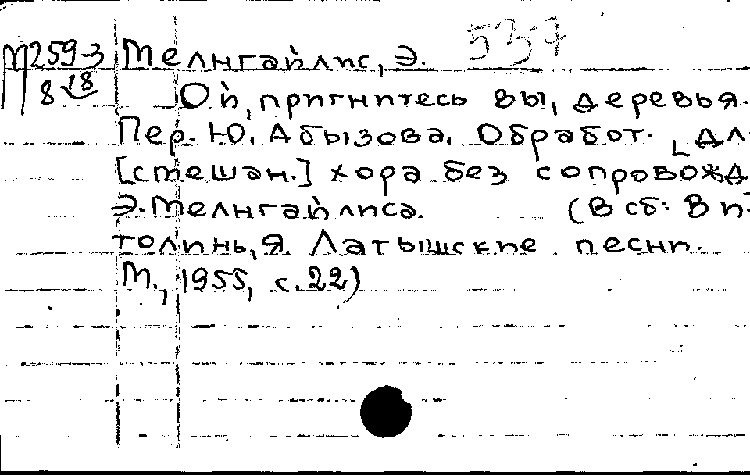 М259-3 Мелнгайлис, Э. 537
8 18 Ой, пригнитесь вы, деревья.
Пер. Ю. Абызова. Обработ. дл
[смешан.] хора без сопровожд
Э. Мелнгайлиса. (В сб: Ви
толинь, Я. Латышские песни.
М., 1955, с. 22)